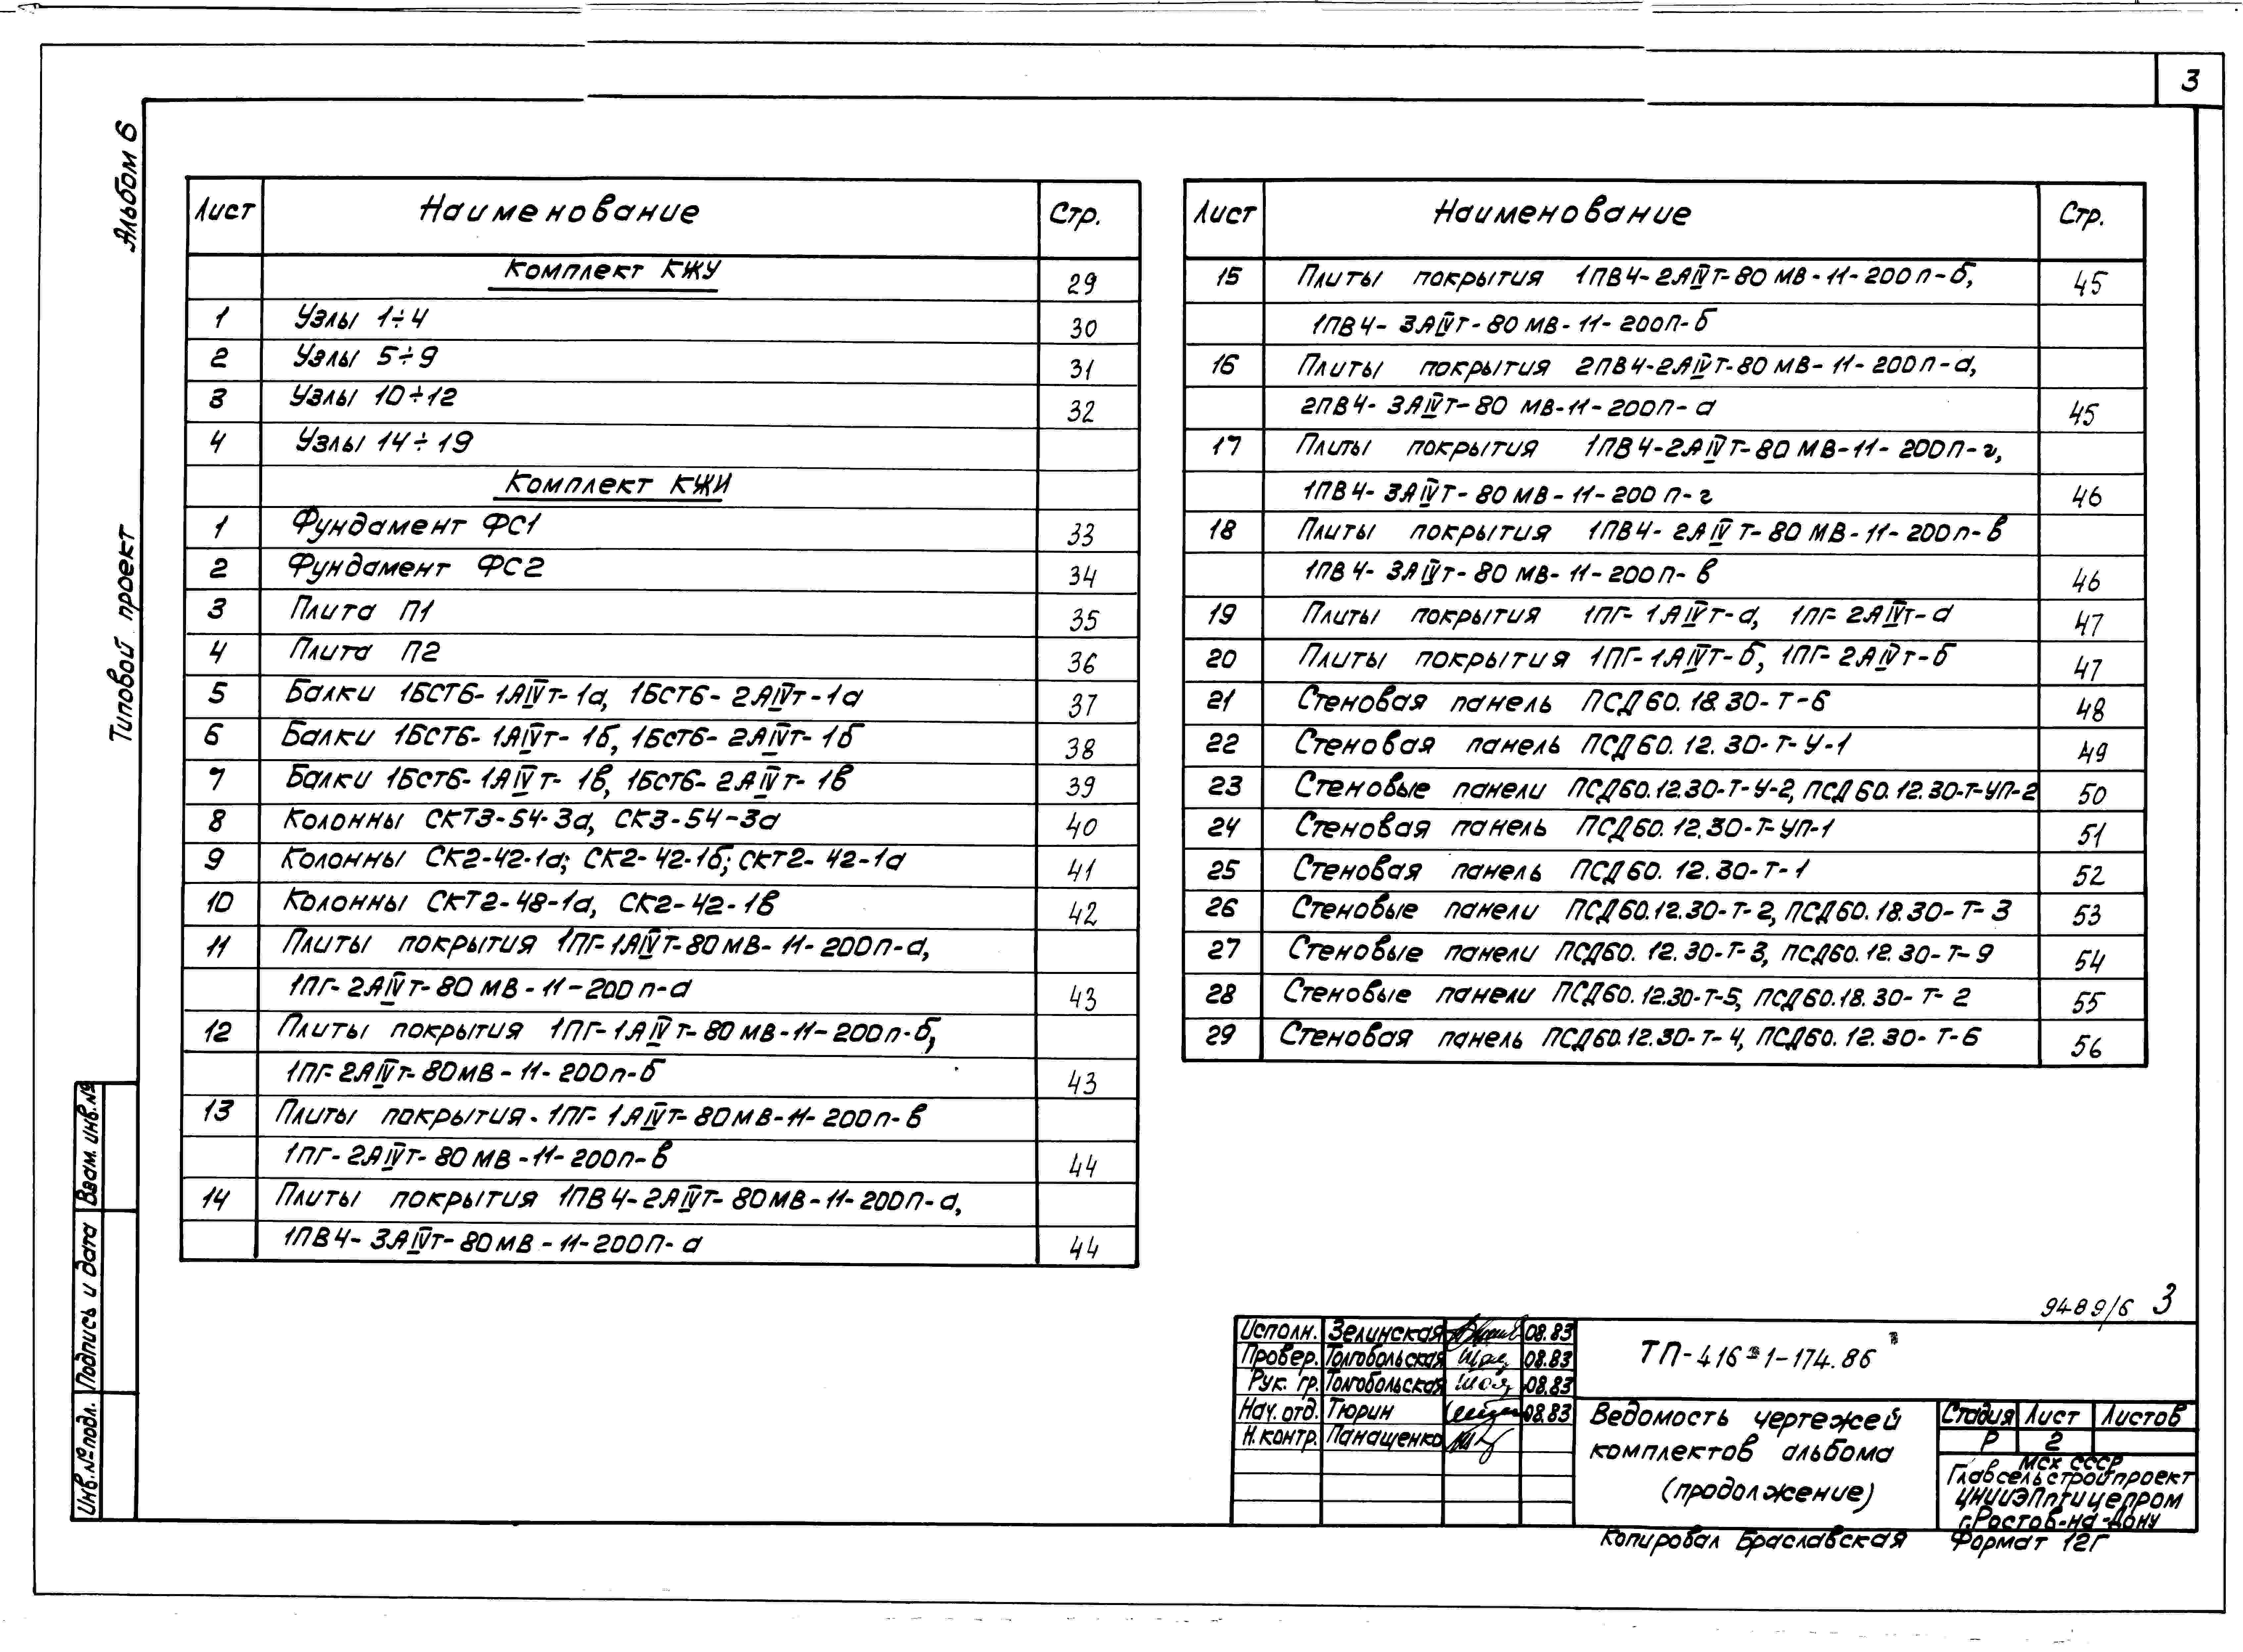 3
Альбом 6
Типовой проект
Лист Наименование Стр.
Комплект КЖУ 29
1 Узлы 1÷4 30
2 Узлы 5÷9 31
3 Узлы 10÷12 32
4 Узлы 14÷19
Комплект КЖИ
1 Фундамент ФС1 33
2 Фундамент ФС2 34
3 Плита П1 35
4 Плита П2 36
5 Балки 1БСТ6-1АIVт-1а, 1БСТ6-2АIVт-1а 37
6 Балки 1БСТ6-1АIVт-1б, 1БСТ6-2АIVт-1б 38
7 Балки 1БСТ6-1АIVт-1в, 1БСТ6-2АIVт-1в 39
8 Колонны СКТ3-54-3а, СК3-54-3а 40
9 Колонны СК2-42-1а; СК2-42-1б; СКТ2-42-1а 41
10 Колонны СКТ2-48-1а, СК2-42-1в 42
11 Плиты покрытия 1ПГ-1АIVт-80МВ-11-200п-а,
1ПГ-2АIVт-80МВ-11-200п-а 43
12 Плиты покрытия 1ПГ-1АIVт-80МВ-11-200п-б,
1ПГ-2АIVт-80МВ-11-200п-б 43
13 Плиты покрытия. 1ПГ-1АIVт-80МВ-11-200п-в
1ПГ-2АIVт-80МВ-11-200п-в 44
14 Плиты покрытия 1ПВ4-2АIVт-80МВ-11-200п-а,
1ПВ4-3АIVт-80МВ-11-200П-а 44
Лист Наименование Стр.
15 Плиты покрытия 1ПВ4-2АIVт-80МВ-11-200п-б, 45
1ПВ4-3АIVт-80МВ-11-200П-б
16 Плиты покрытия 2ПВ4-2АIVт-80МВ-11-200п-а,
2ПВ4-3АIVт-80МВ-11-200п-а 45
17 Плиты покрытия 1ПВ4-2АIVт-80МВ-11-200п-г,
1ПВ4-3АIVт-80МВ-11-200п-г 46
18 Плиты покрытия 1ПВ4-2АIVт-80МВ-11-200п-в
1ПВ4-3АIVт-80МВ-11-200п-в 46
19 Плиты покрытия 1ПГ-1АIVт-а, 1ПГ-2АIVт-а 47
20 Плиты покрытия 1ПГ-1АIVт-б, 1ПГ-2АIVт-б 47
21 Стеновая панель ПСД60.18.30-Т-6 48
22 Стеновая панель ПСД60.12.30-Т-У-1 49
23 Стеновые панели ПСД60.12.30-Т-У-2, ПСД60.12.30-Т-УП-2 50
24 Стеновая панель ПСД60.12.30-Т-УП-1 51
25 Стеновая панель ПСД60.12.30-Т-1 52
26 Стеновые панели ПСД60.12.30-Т-2, ПСД60.18.30-Т-3 53
27 Стеновые панели ПСД60.12.30-Т-3, ПСД60.12.30-Т-9 54
28 Стеновые панели ПСД60.12.30-Т-5, ПСД60.18.30-Т-2 55
29 Стеновая панель ПСД60.12.30-Т-4, ПСД60.12.30-Т-6 56
Инв.№подл. Подпись и дата Взам. инв.№
9489/6 3
Исполн. Зелинская 08.83
Провер. Толгобольская 08.83
Рук. гр. Толгобольская 08.83
Нач. отд. Тюрин 08.83
Н.контр. Панащенко
ТП-416-1-174.86
Ведомость чертежей
комплектов альбома
(продолжение)
Стадия Лист Листов
Р 2
МСХ СССР
Главсельстройпроект
ЦНИИЭПптицепром
г.Ростов-на-Дону
Копировал Браславская Формат 12Г